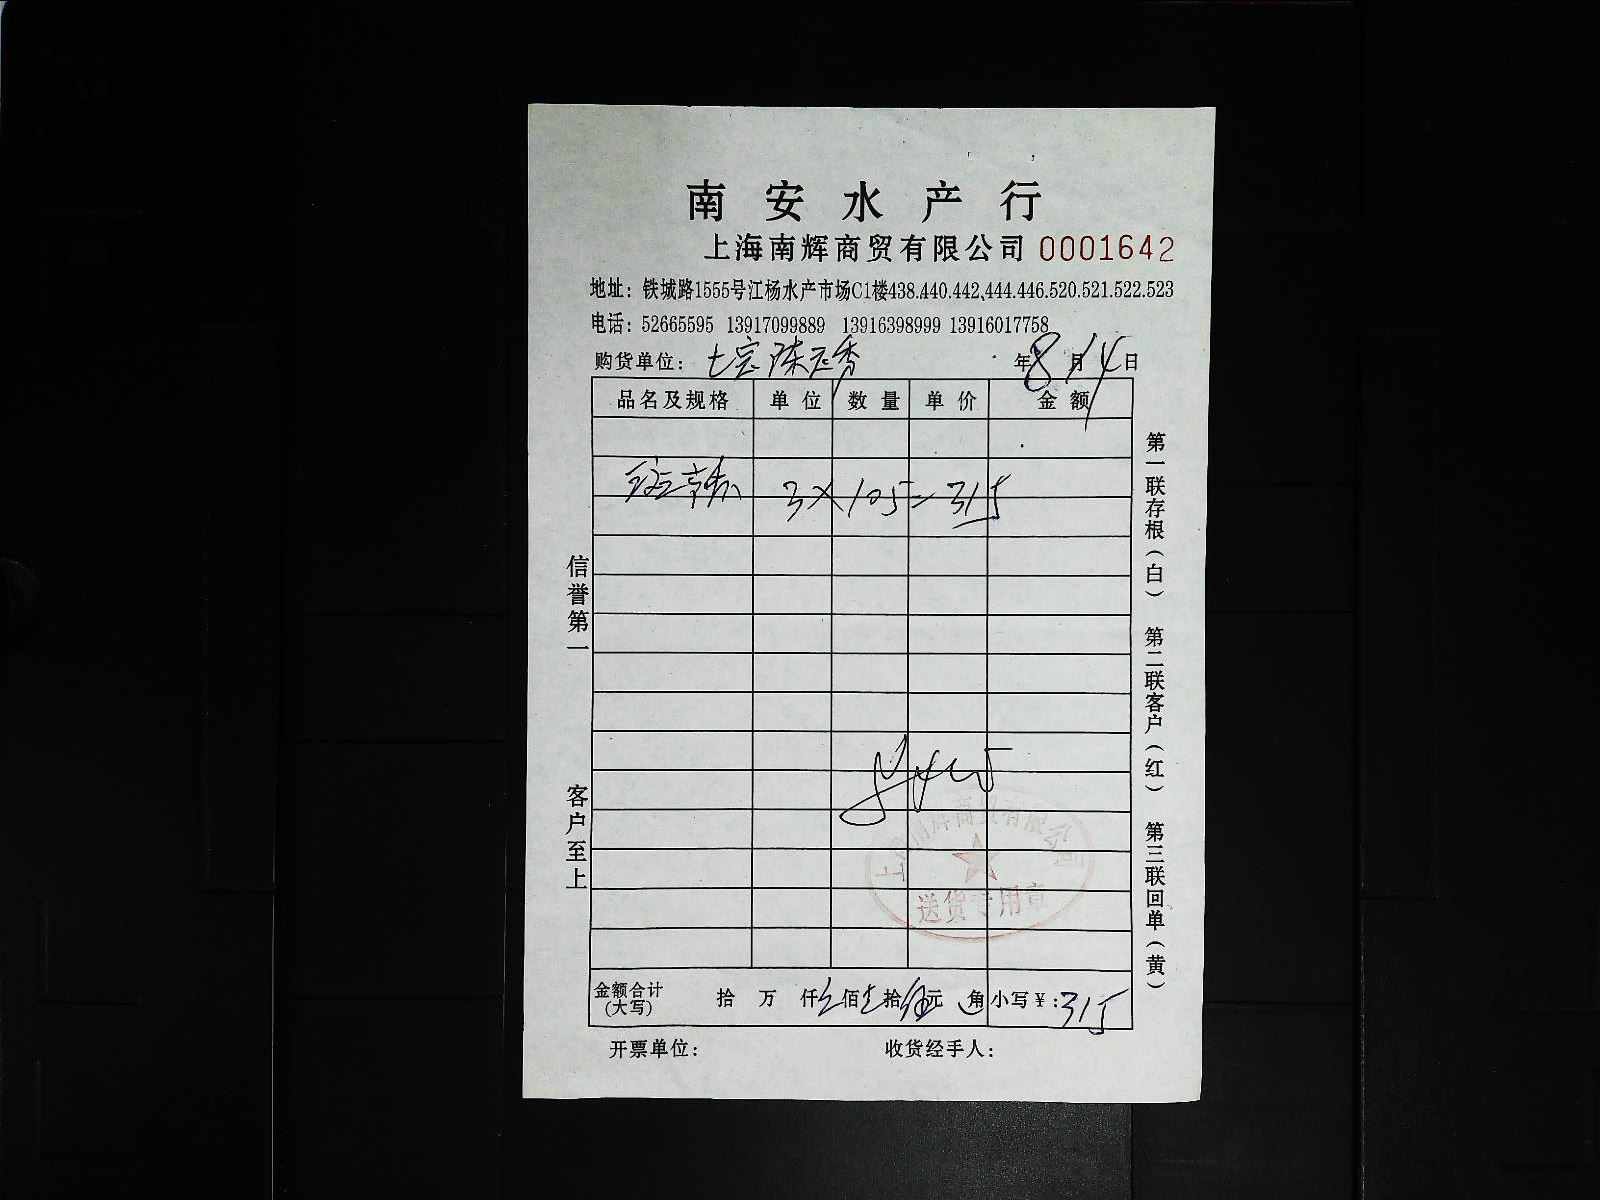 南安水产行
上海南辉商贸有限公司 0001642
地址：铁城路1555号江杨水产市场C1楼438.440.442、444.446.520.521.522.523
电话：52665595 13917099889 13916398999 13916017758
购货单位： 年8月14日
品名及规格 单位 数量 单价 金额
3×105=315
信誉第一
客户至上
第一联存根（白） 第二联客户（红） 第三联回单（黄）
上海南辉商贸有限公司
送货专用章
金额合计（大写） 拾 万 仟 叁佰壹拾伍元 角 小写￥：315
开票单位： 收货经手人：